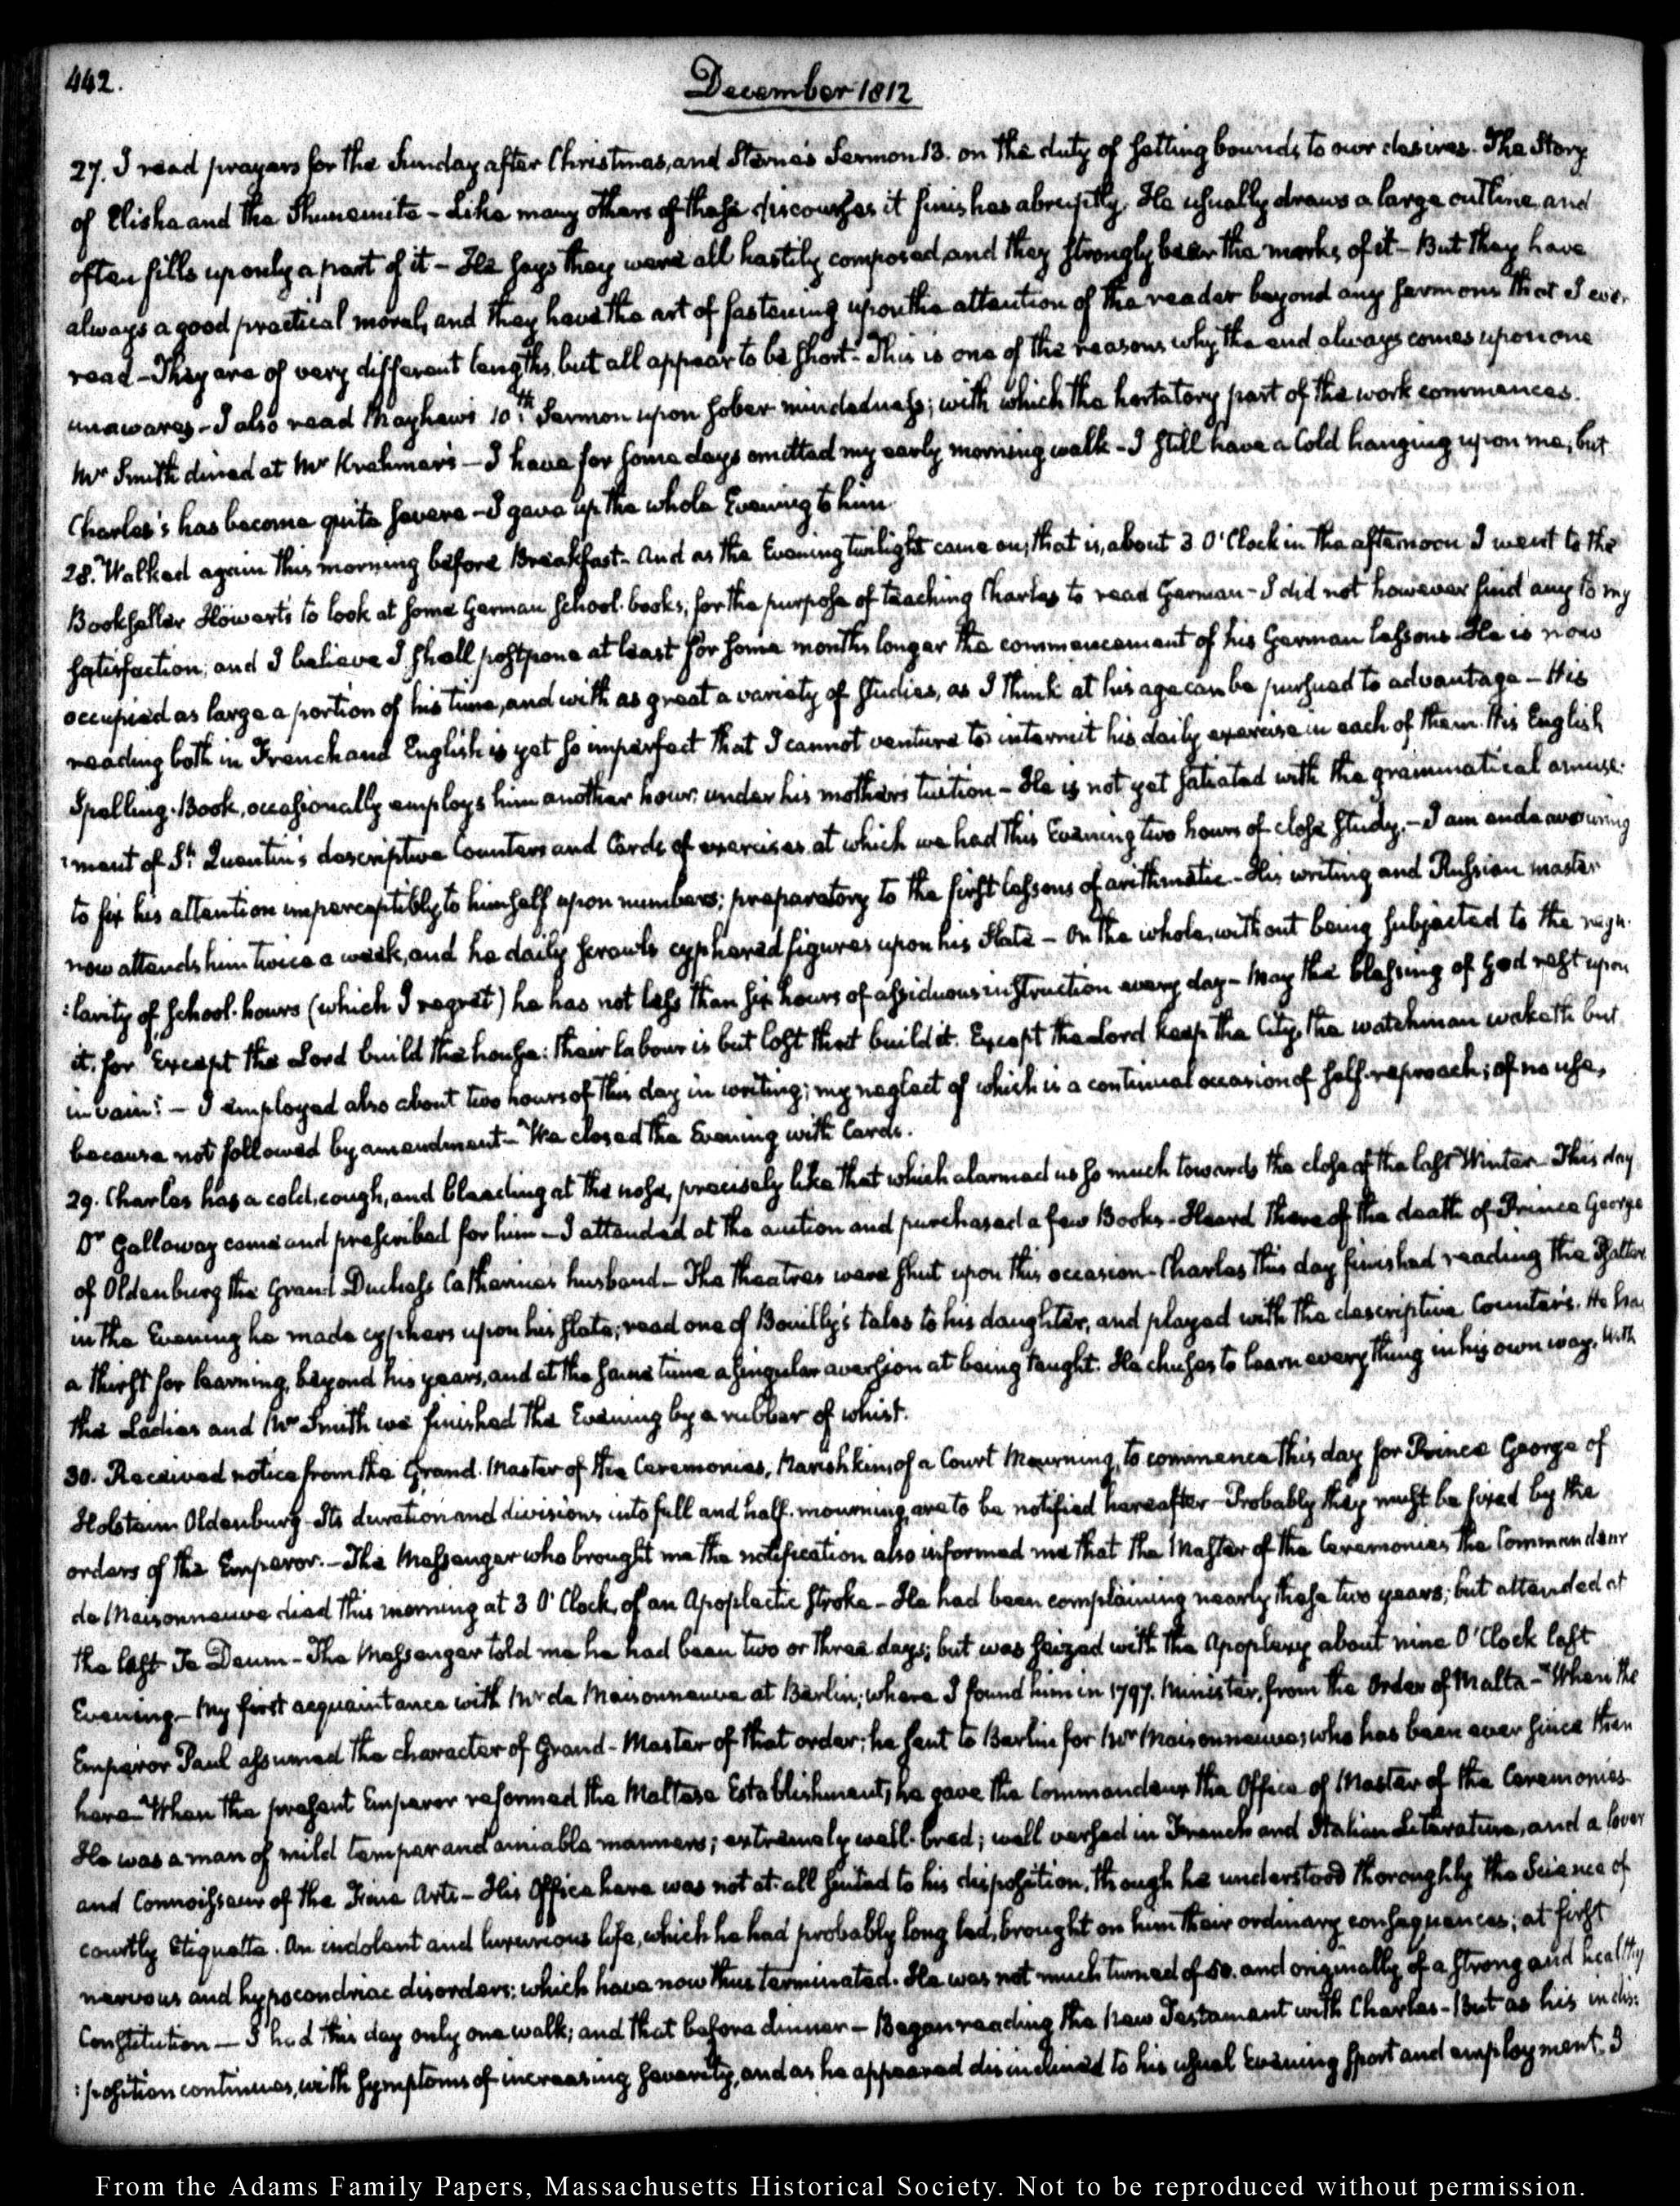 442.
December 1812
27. I read prayers for the Sunday after Christmas, and Sterne's Sermon 13. on the duty of setting bounds to our desires. The Story
of Elisha and the Shunemite - Like many others of these discourses it finishes abruptly. He usually draws a large outline, and
often fills up only a part of it - He says they were all hastily composed, and they strongly bear the marks of it - But they have
always a good practical moral, and they have the art of fastening upon the attention of the reader beyond any sermons that I ever
read - They are of very different lengths, but all appear to be short - This is one of the reasons why the end always comes upon one
unawares - I also read Mayhew's 10.th Sermon upon sober mindedness; with which the hortatory part of the work commences.
Mr Smith dined at Mr Krehmer's - I have for some days omitted my early morning walk - I still have a Cold hanging upon me, but
Charles's has become quite severe - I gave up the whole Evening to him
28. Walked again this morning before Breakfast - And as the Evening twilight came on, that is, about 3 O'Clock in the afternoon I went to the
Bookseller Howert's to look at some German School-books, for the purpose of teaching Charles to read German - I did not however find any to my
satisfaction; and I believe I shall postpone at least for some months longer the commencement of his German lessons. He is now
occupied as large a portion of his time, and with as great a variety of studies, as I think at his age can be pursued to advantage - His
reading both in French and English is yet so imperfect that I cannot venture to intermit his daily exercise in each of them. His English
Spelling-Book, occasionally employs him another hour, under his mother's tuition - He is not yet satiated with the grammatical amuse:
:ment of St. Quentin's descriptive Counters and Cards of exercises at which we had this Evening two hours of close study. - I am endeavouring
to fix his attention imperceptibly to himself upon numbers; preparatory to the first lessons of arithmetic - His writing and Russian master
now attends him twice a week, and he daily scrawls cyphered figures upon his Slate - On the whole, without being subjected to the regu:
:larity of school-hours (which I regret) he has not less than six hours of assiduous instruction every day - May the blessing of God rest upon
it. for "Except the Lord build the house: their labour is but lost that build it. Except the Lord keep the City, the watchman waketh but
in vain: - I employed also about two hours of this day in writing; my neglect of which is a continual occasion of self-reproach; of no use,
because not followed by amendment - We closed the Evening with Cards.
29. Charles has a cold, cough, and bleeding at the nose, precisely like that which alarmed us so much towards the close of the last Winter - This day
Dr Galloway came and prescribed for him - I attended at the auction and purchased a few Books - Heard there of the death of Prince George
of Oldenburg the Grand Duchess Catherine's husband - The theatres were shut upon this occasion - Charles this day finished reading the Psalter
in the Evening he made cyphers upon his slate; read one of Bouilly's tales to his daughter, and played with the descriptive Counters. He has
a thirst for learning, beyond his years, and at the same time a singular aversion at being taught. He chuses to learn every thing in his own way. With
the Ladies and Mr Smith we finished the Evening by a rubber of whist.
30. Received notice from the Grand-Master of the Ceremonies, Narishkin, of a Court Mourning, to commence this day for Prince George of
Holstein Oldenburg - Its duration and divisions into full and half-mourning, are to be notified hereafter - Probably they must be fixed by the
orders of the Emperor. - The Messenger who brought me the notification also informed me that the Master of the Ceremonies the Commandeur
de Maisonneuve died this morning at 3 O'Clock, of an Apoplectic stroke - He had been complaining nearly these two years; but attended at
the last Te Deum - The Messenger told me he had been two or three days; but was seized with the Apoplexy about nine O'Clock last
Evening - My first acquaintance with Mr de Maisonneuve at Berlin; where I found him in 1797. Minister, from the Order of Malta - When the
Emperor Paul assumed the character of Grand-Master of that order; he sent to Berlin for Mr Maisonneuve, who has been ever since then
here - When the present Emperor reformed the Maltese Establishment, he gave the Commandeur the Office of Master of the Ceremonies.
He was a man of mild temper and amiable manners; extremely well-bred; well versed in French and Italian Literature, and a lover
and Connoisseur of the Fine Arts - His Office here was not at-all suited to his disposition, though he understood thoroughly the Science of
courtly Etiquette. An indolent and luxurious life, which he had probably long led, brought on him their ordinary consequences; at first
nervous and hypocondriac disorders; which have now thus terminated. He was not much turned of 50. and originally of a strong and healthy
Constitution - I had this day only one walk; and that before dinner - Began reading the New Testament with Charles - But as his indis:
:position continues, with symptoms of increasing severity, and as he appeared disinclined to his usual Evening sport and employment. I
From the Adams Family Papers, Massachusetts Historical Society. Not to be reproduced without permission.